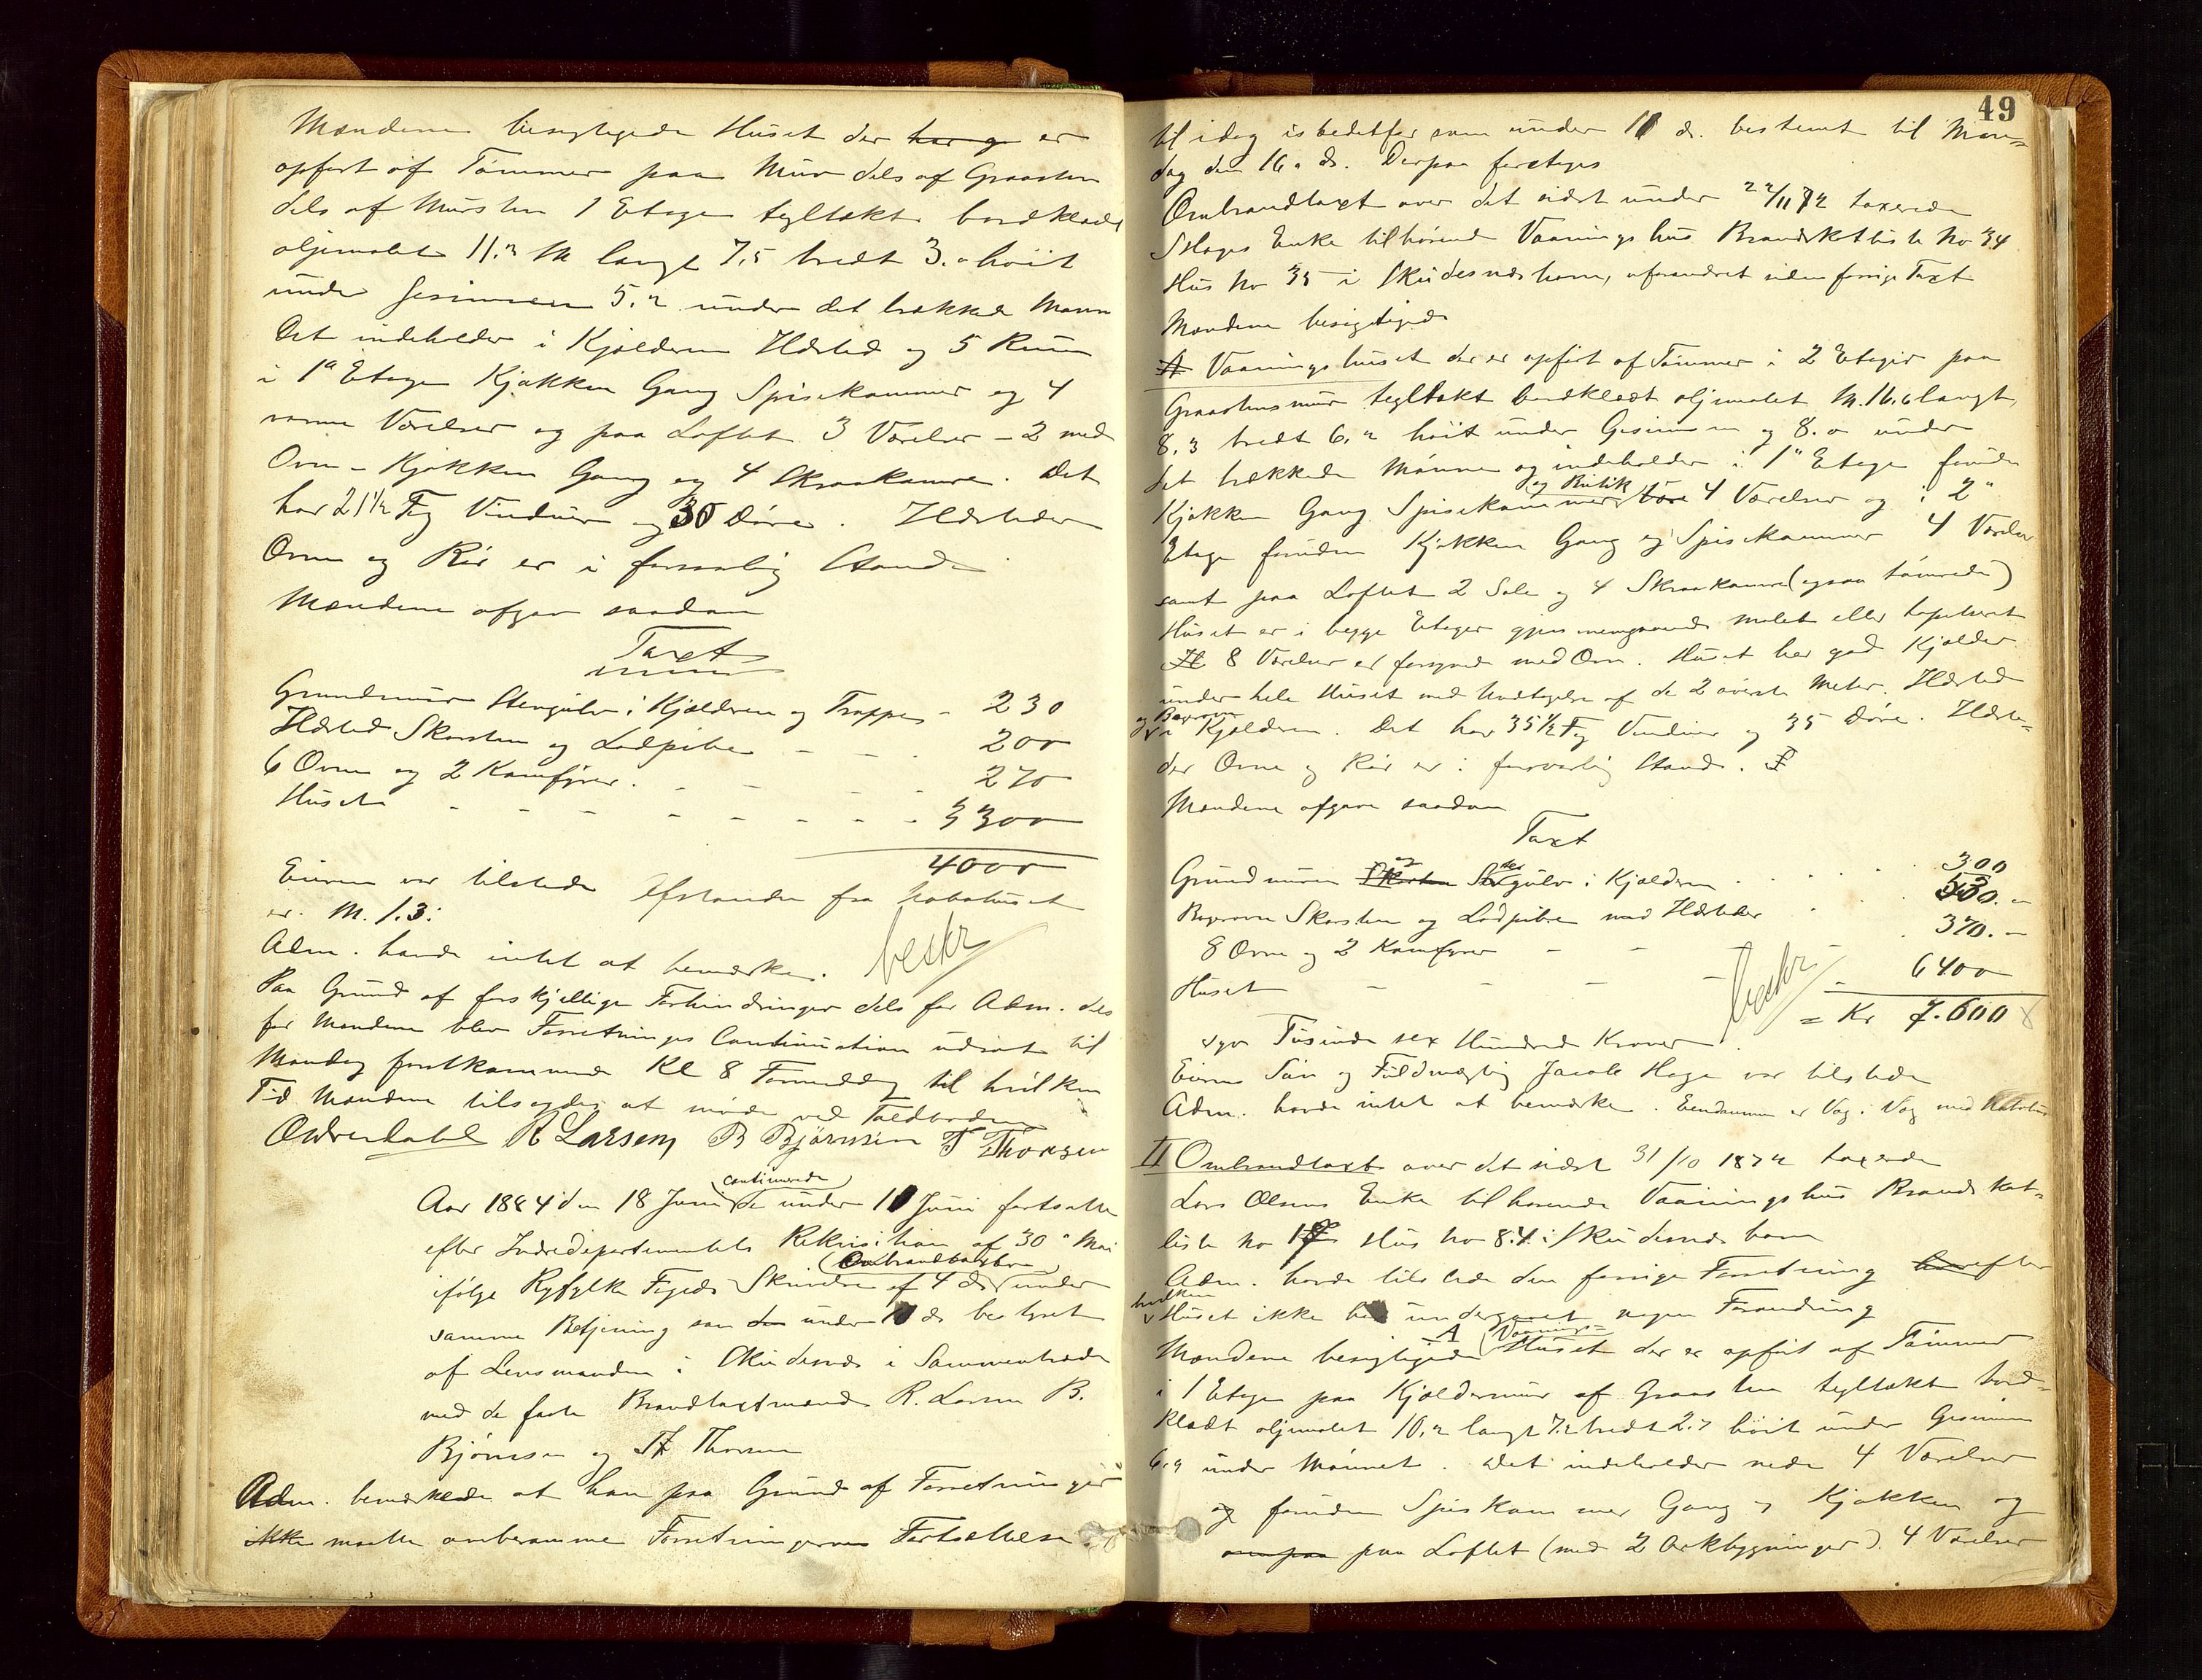 Mændene besigtigede Huset der har og er
opført af Tømmer paa Mur dels af Graasten
dels af Mursten 1 Etage tegltækt bordklædt
oljemalet 11.2 M langt 7.5 bredt 3.0 høit
under Gesimsen 5.2 under det trækkede Mønne
Det indeholder i Kjælderen Ildsted og 5 Rum
i 1ª Etage Kjøkken Gang Spisekammer og 4
varme Værelser og paa Loftet 3 Værelser - 2 med
Ovn - Kjøkken Gang og 4 Skraakamre. Det
har 21½ Fg Vinduer og 30 Døre. Ildsteder
Ovne og Rør er i forsvarlig Stand
Mændene afgav saadan
Taxt
Grundmur Stengulv i Kjælderen og Trapper - 230
Ildsted Skorsten og Lodpibe - - . 200
6 Ovne og 2 Komfyrer. - - - - 270
Huset - - - - - - - - 3300
4000
Eieren var tilstede Afstanden fra Nabohuset
er M. 1.3.
Adm. havde intet at bemærke. beskr
Paa Grund af forskjellige Forhindringer dels for Adm. dels
for Mændene blev Forretningens Continuation udsat til
Mandag førstkommende Kl 8 Formiddag til hvilken
Tid Mændene tilsagdes at møde ved Toldboden
R Larsen B Bjørnsen T Thorsen
continuerede
Aar 1884 den 18 Juni de under 10 Juni fortsatte
efter Indredepartementets Rekvisition af 30" Mai
Ombrandtaxter
ifølge Ryfylke Fogeds Skrivelse af 4 ds under
samme Betjening som de under 10 ds bestyret
af Lensmanden i Skudesnæs i Sammentræde
med de faste Brandtaxtmænd R. Larsen B.
Bjørnsen og T Thorsen
Adm. bemærkede at han paa Grund af Forretninger
ikke maatte anberamme Forretningernes Fortsættelse
49
til idag istedetfor som under 10 ds. bestemt til Man-
dag den 16" ds. Derpaa foretoges
Ombrandtaxt over det sidst under 22/11 72 taxerede
Hages Enke tilhørende Vaaningshus Brandktliste No 34
Hus No 35 i Skudesnæshavn, uforandret siden forrige Taxt
Mændene besigtigede
A Vaaningshuset der er opført af Tømmer i 2 Etager paa
Graastensmur tegltækt bordklædt oljemalet M. 16.6 langt,
8.3 bredt 6.2 høit under Gesimsen og 8.0 under
det trækkede Mønne og indeholder i 1" Etage foruden
og Butik
Kjøkken Gang Spisekammer 4 Værelser og i 2"
Etage foruden Kjøkken Gang og Spisekammer 4 Værelser
samt paa Loftet 2 Sale og 4 Skraakamre (ogsaa tømrede)
Huset er i begge Etager gjennemgaaende malet eller tapetseret
8 Værelser er forsynet med Ovn. Huset har god Kjælder
under hele Huset med Undtagelse af de 2 øverste Meter. Ildsted
og Bagerovn
i Kjælderen. Det har 35½ Fg Vinduer og 35 Døre. Ildste-
der Ovne og Rør er i forsvarlig Stand.
Mændene afgav saadan
Taxt
Grundmuren og Stengulv i Kjælderen . . . . . 300
Bagerovn Skorsten og Lodpibe med Ildsteder . . . 530.-
8 Ovne og 2 Komfyrer - - . 370.-
Huset - - - - - 6400
beskr
= Kr 7.600
syv Tusinde sex Hundrede Kroner.
Eierens Søn og Fuldmægtig Jacob Hage var tilstede
Adm. havde intet at bemærke. Eiendommen er Væg i Væg med Nabohus
II Ombrandtaxt over det sidst 31/10 1872 taxerede
Lars Olsens Enke tilhørende Vaaningshus Brandskat-
liste No 17 Hus No 84 i Skudesnæshavn
Adm. havde tilstede den forrige Forretning efter
hvilken
Huset ikke har undergaaet nogen Forandring
A Vaanings-
Mændene besigtigede Huset der er opført af Tømmer
i 1 Etage paa Kjældermur af Graasten tegltækt bord-
klædt oljemalet 10.2 langt 7.2 bredt 2.7 høit under Gesimsen
6.9 under Mønnet. Det indeholder nede 4 Værelser
og foruden Spiskammer Gang og Kjøkken og
paa Loftet (med 2 Arkbygninger). 4 Værelser